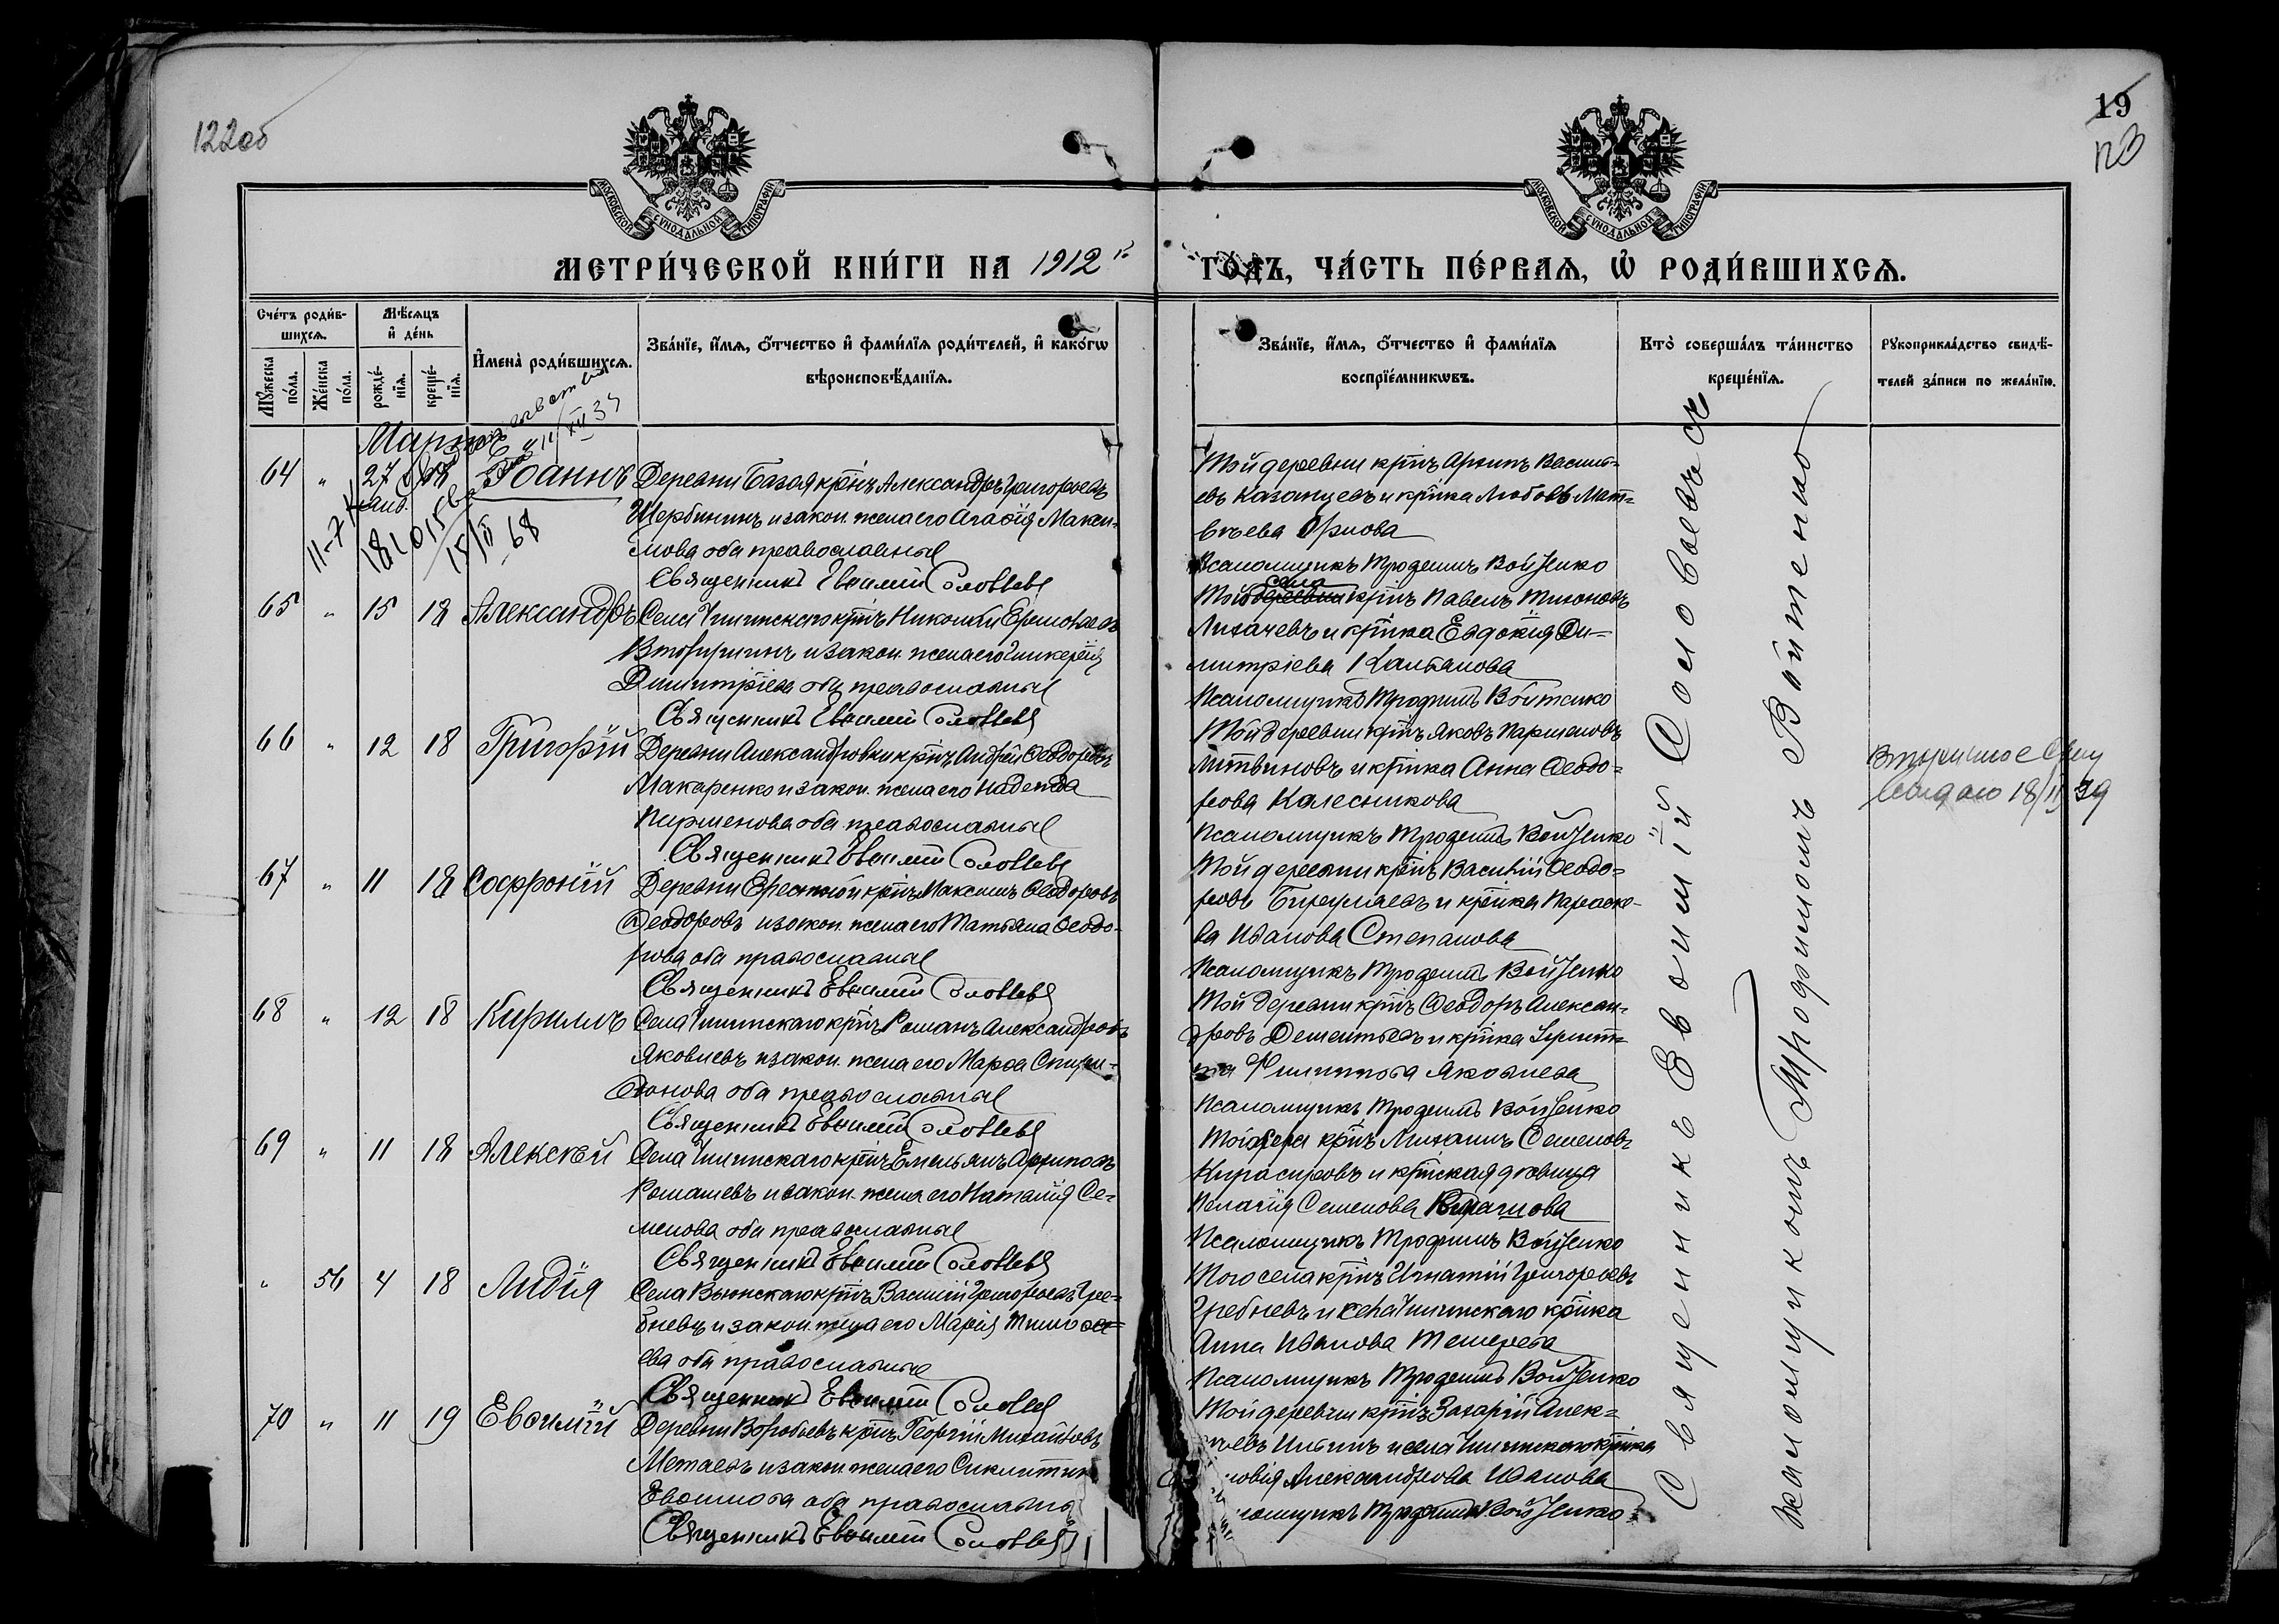 122об
19
123
МОСКОВСКОЙ СѴНОДАЛЬНОЙ ТИПОГРАФІИ
МОСКОВСКОЙ СѴНОДАЛЬНОЙ ТИПОГРАФІИ
МЕТРИ́ЧЕСКОЙ КНИ́ГИ НА 1912й
ГО́ДЪ, ЧА́СТЬ ПЕ́РВАѦ, Ѡ҆ РОДИ́ВШИХСѦ.
Сче́тъ роди́в-
шихсѧ.
Мꙋ́жеска по́ла.
Же́нска по́ла.
Мѣ́сѧцъ
и҆ де́нь
рожде́-
нїѧ.
креще́-
нїѧ.
И҆мена̀ роди́вшихсѧ.
Зва́нїе, и҆́мѧ, ѻ҆́тчество и҆ фами́лїѧ роди́телей, и҆ како́гѡ
вѣроисповѣ́данїѧ.
Зва́нїе, и҆́мѧ, ѻ҆́тчество и҆ фами́лїѧ
воспрїе́мникѡвъ.
Кто̀ соверша́лъ та́инство
креще́нїѧ.
Рꙋкоприкла́дство свидѣ́-
телей за́писи по жела́нїю.
Мартъ
64 " 27 Іоаннъ
Деревни Базоя кр҃нъ Александръ Григорьевъ
Щербининъ и закон. жена его Агаѳія Макси-
мова оба православные
Священникъ Евѳимій Соловьевъ
Той деревни кр҃нъ Архипъ Василь-
евъ Казанцевъ и кр҃нка Любовь Мат-
вѣева Орлова
Псаломщикъ Трофимъ Войтенко
65 " 15 18 Александръ
Села кр҃нъ Николай Ермолаевъ
и закон. жена его Гликерія
Димитріева оба православные
Священникъ Евѳимій Соловьевъ
села
Той деревни кр҃нъ Павелъ Тихоновъ
Лихачевъ и кр҃нка Евдокія Ди-
митріева
Псаломщикъ Трофимъ Войтенко
66 " 12 18 Григорій
Деревни Александровки кр҃нъ Андрей Ѳеодоровъ
Макаренко и закон. жена его Надежда
Парменова оба православные
Священникъ Евѳимій Соловьевъ
Той деревни кр҃нъ Яковъ Парменовъ
Литвиновъ и кр҃нка Анна Ѳеодо-
рова Калесникова
Псаломщикъ Трофимъ Войтенко
18/II 39
67 " 11 18 Софроній
Деревни кр҃нъ Максимъ Ѳеодоровъ
Ѳеодоровъ и закон. жена его Татьяна Ѳеодо-
рова оба православные
Священникъ Евѳимій Соловьевъ
Той деревни кр҃нъ Василій Ѳеодо-
ровъ и кр҃нка Параске-
ва Иванова Степанова
Псаломщикъ Трофимъ Войтенко
68 " 12 18 Кириллъ
Села кр҃нъ Романъ Александровъ
Яковлевъ и закон. жена его Марѳа Спири-
донова оба православные
Священникъ Евѳимій Соловьевъ
Той деревни кр҃нъ Ѳеодоръ Алексан-
дровъ Дементьевъ и кр҃нка
Филиппова Яковлева
Псаломщикъ Трофимъ Войтенко
69 " 11 18 Алексѣй
Села кр҃нъ Емельянъ Архиповъ
Ромашевъ и закон. жена его Наталія Се-
менова оба православные
Священникъ Евѳимій Соловьевъ
кр҃нъ Михаилъ Семеновъ
Кирасировъ и кр҃нская дѣвица
Пелагія Семенова
Псаломщикъ Трофимъ Войтенко
" 56 4 18 Лидія
Села Вьюнскаго кр҃нъ Василій Григорьевъ Гре-
бневъ и закон. жена его Марія Тимоѳе-
ева оба православные
Священникъ Евѳимій Соловьевъ
Того села кр҃нъ Игнатій Григорьевъ
Гребневъ и села кр҃нка
Анна Иванова
Псаломщикъ Трофимъ Войтенко
70 " 11 19 Евѳимій
Деревни Воробьевъ кр҃нъ Георгій Михайловъ
Метаевъ и закон. жена его Синклитикія
Евѳимова оба православные
Священникъ Евѳимій Соловьевъ
Той деревни кр҃нъ Захарій Алек-
Ильинъ и села кр҃нка
Александрова Иванова
Трофимъ Войтенко
Священникъ Евѳимій Соловьевъ съ
псаломщикомъ Трофимомъ Войтенко